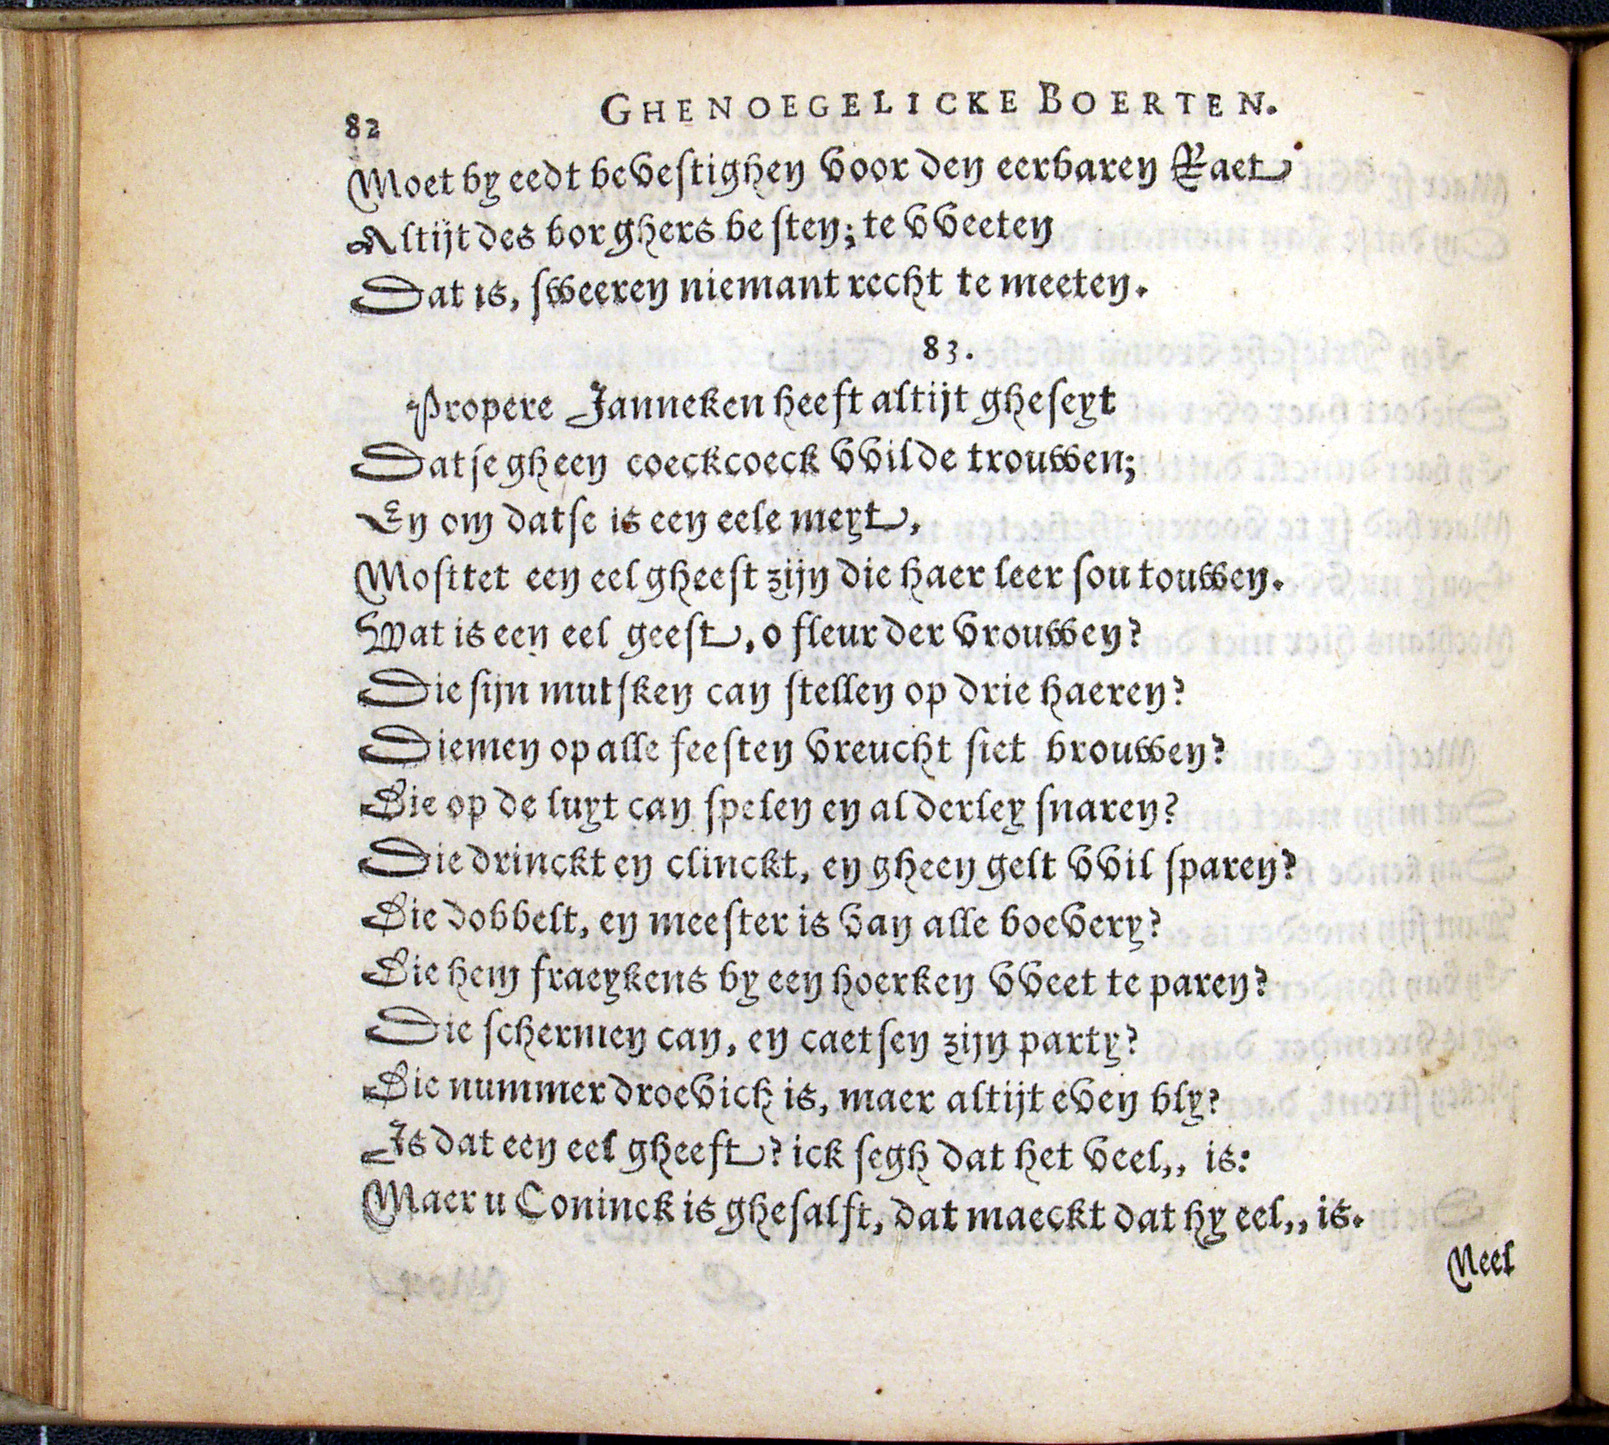 82 GHENOEGELICKE BOERTEN.
Moet by eedt bevestighen voor den eerbaren Raet
Altijt des borghers besten; te vveeten
Dat is, sweeren niemant recht te meeten.
83.
Propere Janneken heeft altijt gheseyt
Datse gheen coeckcoeck vvilde trouwen;
En om datse is een eele meyt,
Mosttet een eel gheest zijn die haer leer sou touwen.
Wat is een eel geest, o fleur der vrouwen?
Die sijn mutsken can stellen op drie haeren?
Diemen op alle feesten vreucht siet brouwen?
Die op de luyt can spelen en alderley snaren?
Die drinckt en clinckt, en gheen gelt vvil sparen?
Die dobbelt, en meester is van alle boevery?
Die hem fraeykens by een hoerken vveet te paren?
Die schermen can, en caetsen zijn party?
Die nummer droevich is, maer altijt even bly?
Is dat een eel gheest? ick segh dat het veel,, is:
Maer u Coninck is ghesalft, dat maeckt dat hy eel,, is.
Neel